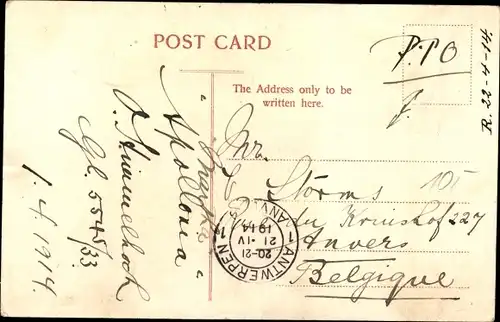 POST CARD
P.T.O
The Address only to be
written here.
Mr.
Storms 105
Rue du Kruishof 227
Anvers
Belgique
ANTWERPEN 1
20-21
21 · IV
1914
ANVERS 1
R. 22-4-14
" Apollonia "
1.4.1914.